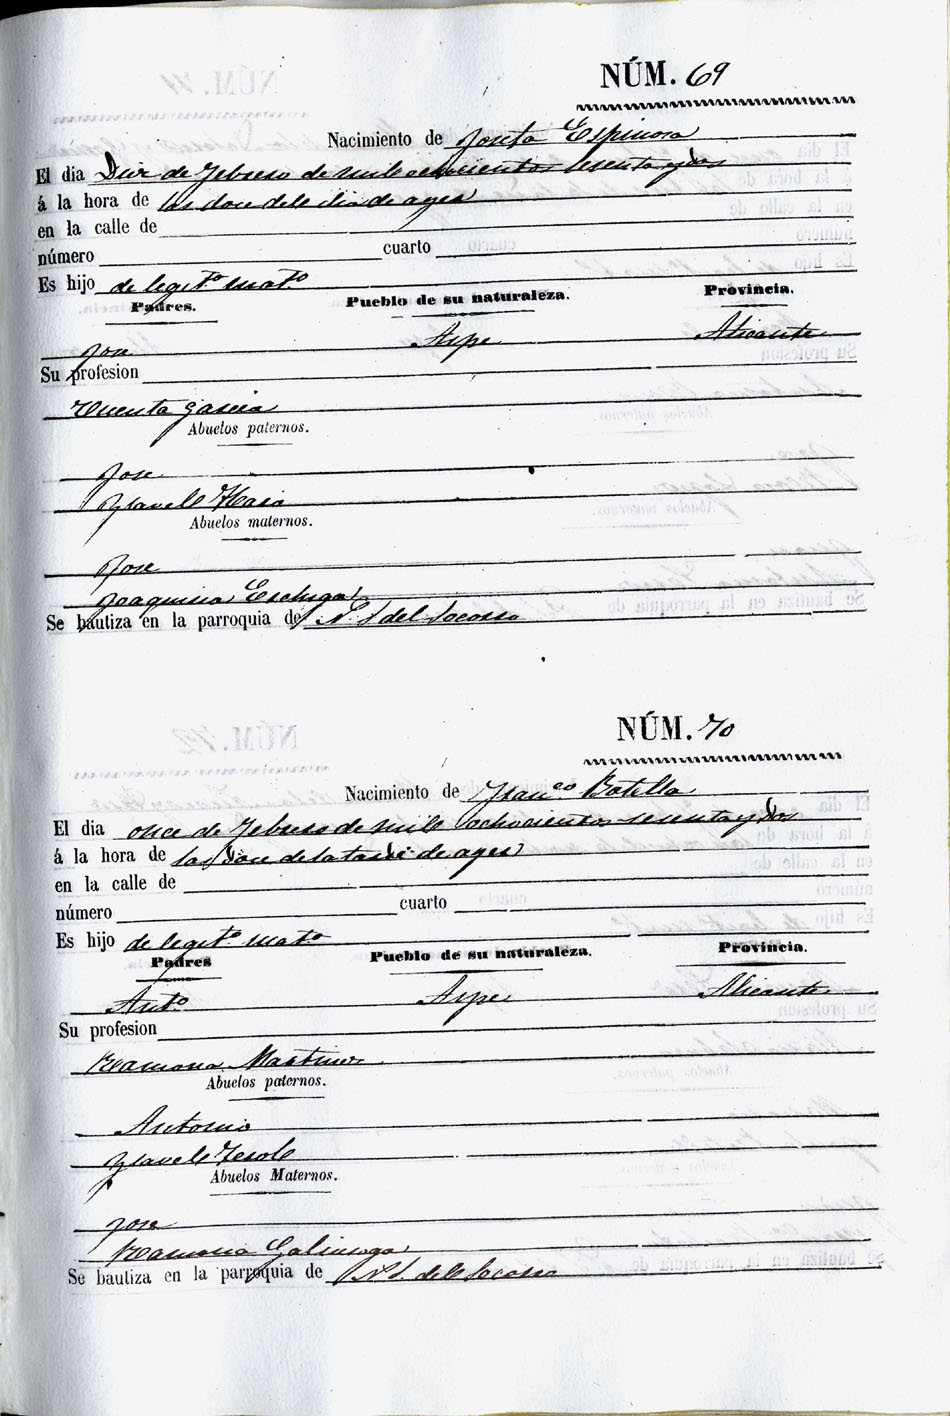 NÚM. 69
Nacimiento de Josefa Espinosa
El dia Diez de Febrero de mil ochocientos sesenta y dos
á la hora de las doce del dia de ayer
en la calle de
número cuarto
Es hijo de legit.º mat.º
Padres. Pueblo de su naturaleza. Provincia.
Jose Aspe Alicante
Su profesion
Vicenta Garcia
Abuelos paternos.
Jose
Ysavel
Abuelos maternos.
Jose
Joaquina
Se bautiza en la parroquia de N. S. del Socorro
NÚM. 70
Nacimiento de Fran.co Botella
El dia once de Febrero de mil ochocientos sesenta y dos
á la hora de las doce de la tarde de ayer
en la calle de
número cuarto
Es hijo de legit.º mat.º
Padres Pueblo de su naturaleza. Provincia.
Ant.º Aspe Alicante
Su profesion
Ramona Martinez
Abuelos paternos.
Antonio
Ysavel
Abuelos Maternos.
Jose
Ramona Galinsoga
Se bautiza en la parroquia de N. S. del Socorro